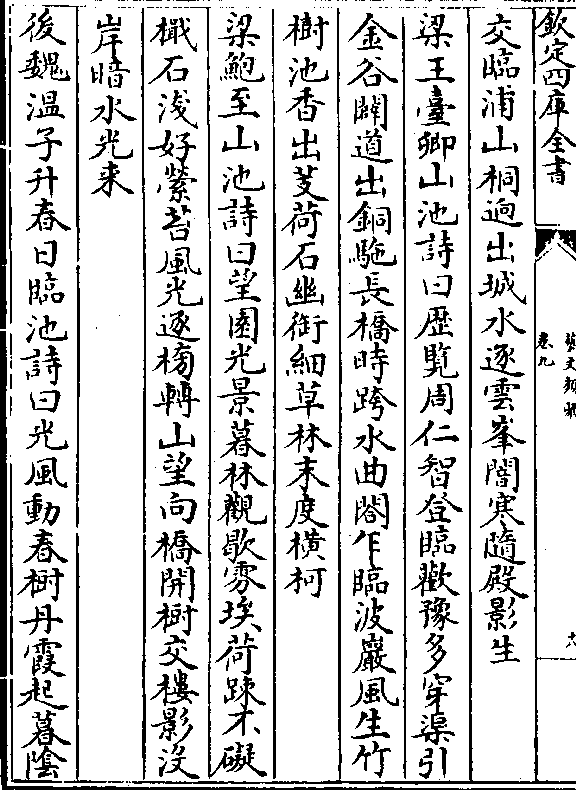 欽定四庫全書
藝文類聚
卷九
六
交臨浦山桐逈出城水逐雲峯闇寒隨殿影生
梁王臺卿山池詩曰歴覧周仁智登臨歡豫多穿渠引
金谷闢道出銅駞長橋時跨水曲閣乍臨波巖風生竹
樹池香出芰荷石幽銜細草林末度橫柯
梁鮑至山池詩曰望園光景暮林觀歇雰埃荷踈不礙
檝石淺好縈苔風光逐榜轉山望向橋開樹交樓影沒
岸暗水光来
後魏溫子升春日臨池詩曰光風動春樹丹霞起暮陰